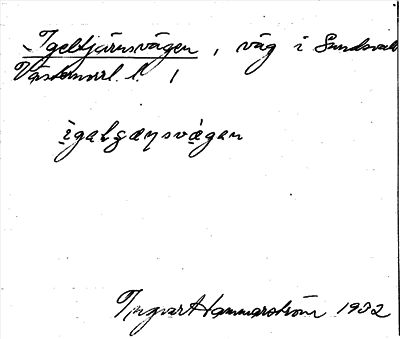 Igeltjärnsvägen, väg i Sundsvall
Västernorrl. l.
ìgalʒæɳsvàgan
Ingvar Hammarström 1932